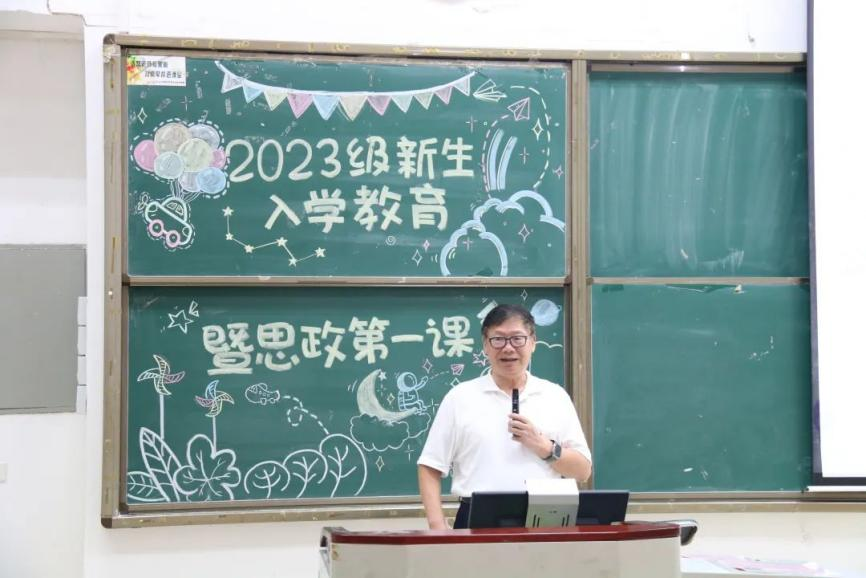 2023级新生
入学教育
暨思政第一课